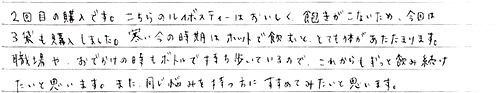 2回目の購入です。こちらのルイボスティーはおいしく、飽きがこないため、今回は
3袋も購入しました。寒い今の時期はホットで飲むと、とても体があたたまります。
職場や、おでかけの時もボトルで持ち歩いているので、これからもずっと飲み続け
たいと思います。また、同じ悩みを持つ方にすすめてみたいと思います。